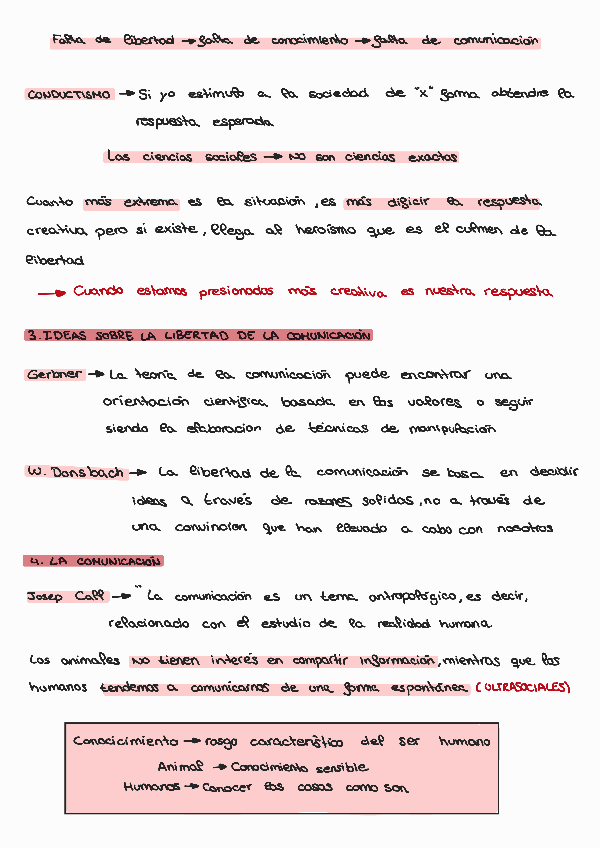 Falta de libertad → falta de conocimiento → falta de comunicación
CONDUCTISMO → Si yo estimulo a la sociedad de "x" forma obtendre la
respuesta esperada
Las ciencias sociales → NO son ciencias exactas
Cuanto más extrema es la situación, es más dificir la respuesta
creativa pero si existe, llega al heroísmo que es el culmen de la
libertad
→ Cuando estamos presionados más creativa es nuestra respuesta
3. IDEAS SOBRE LA LIBERTAD DE LA COMUNICACIÓN
Gerbner → La teoría de la comunicación puede encontrar una
orientación científica basada en los valores o seguir
siendo la elaboracion de técnicas de manipulación
W. Donsbach → La libertad de la comunicación se basa en decidir
ideas a través de razones solidas, no a través de
una convincion que han llevado a cabo con nosotros
4. LA COMUNICACIÓN
Josep Call → " La comunicación es un tema antropológico, es decir,
relacionado con el estudio de la realidad humana
Los animales NO tienen interés en compartir información, mientras que los
humanos tendemos a comunicarnos de una forma espontánea (ULTRASOCIALES)
Conocicimiento → rasgo característico del ser humano
Animal → Conocimiento sensible
Humanos → Conocer las cosas como son